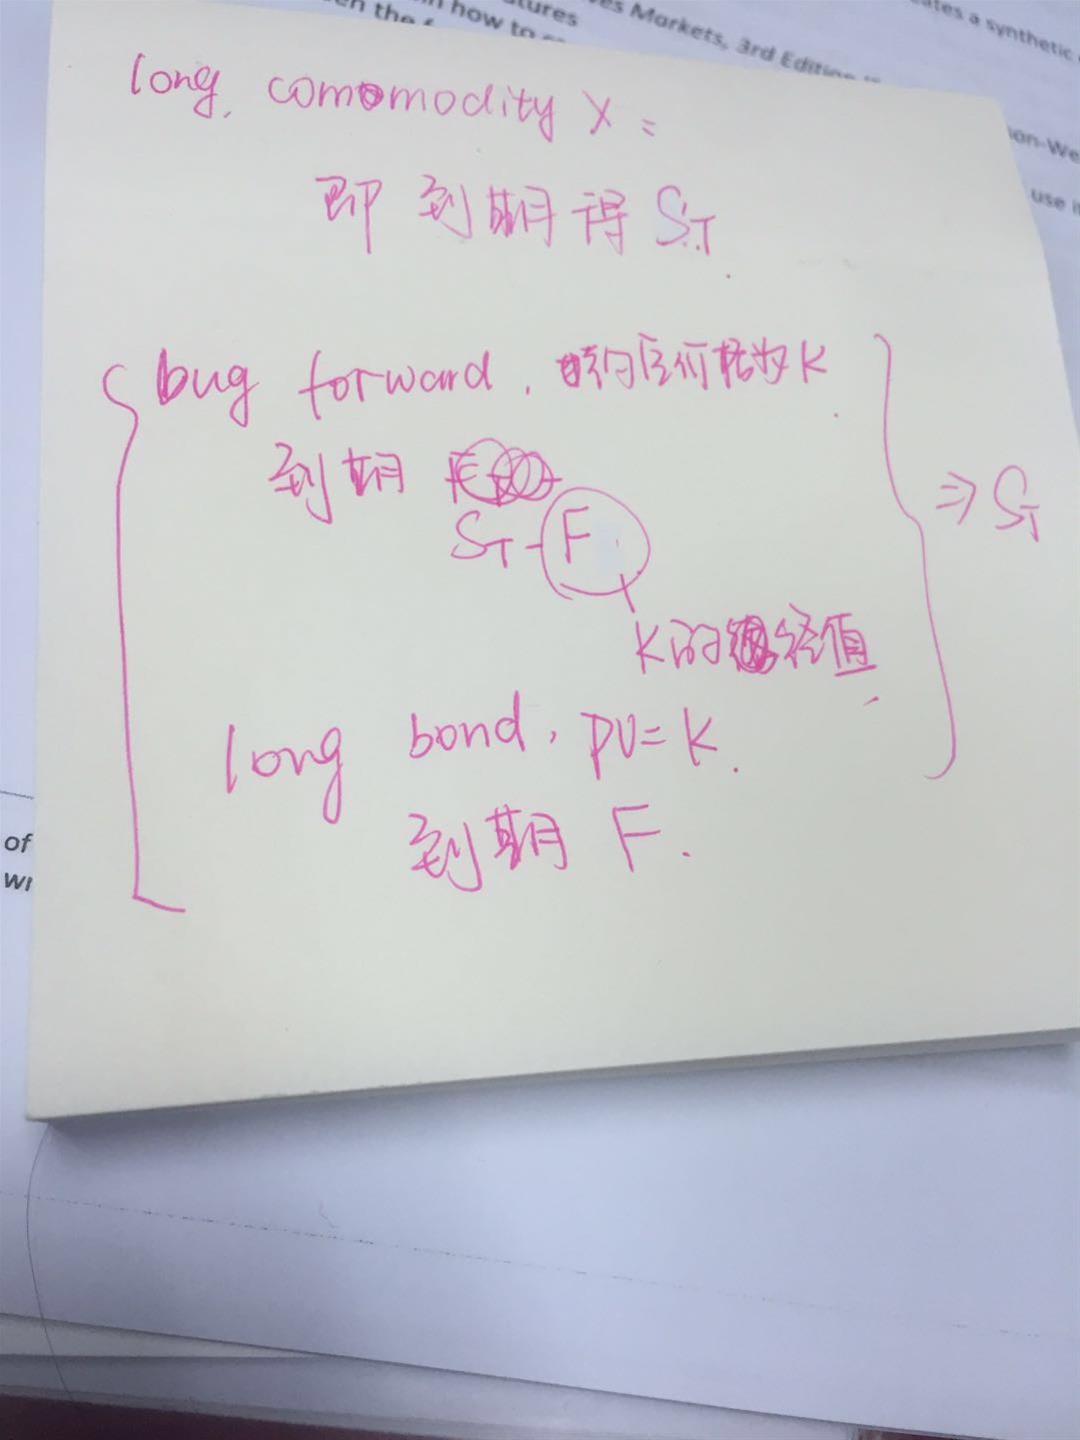 tures
n how to
en the f
es Markets, 3rd Edition
ates a synthetic
ion-We
use i
long, comomodity X =
即 到期得 ST.
bug forward, 约定价格为K.
到期
ST - F
⇒ ST
K的终值.
long bond, PV = K.
到期 F.
of
wi